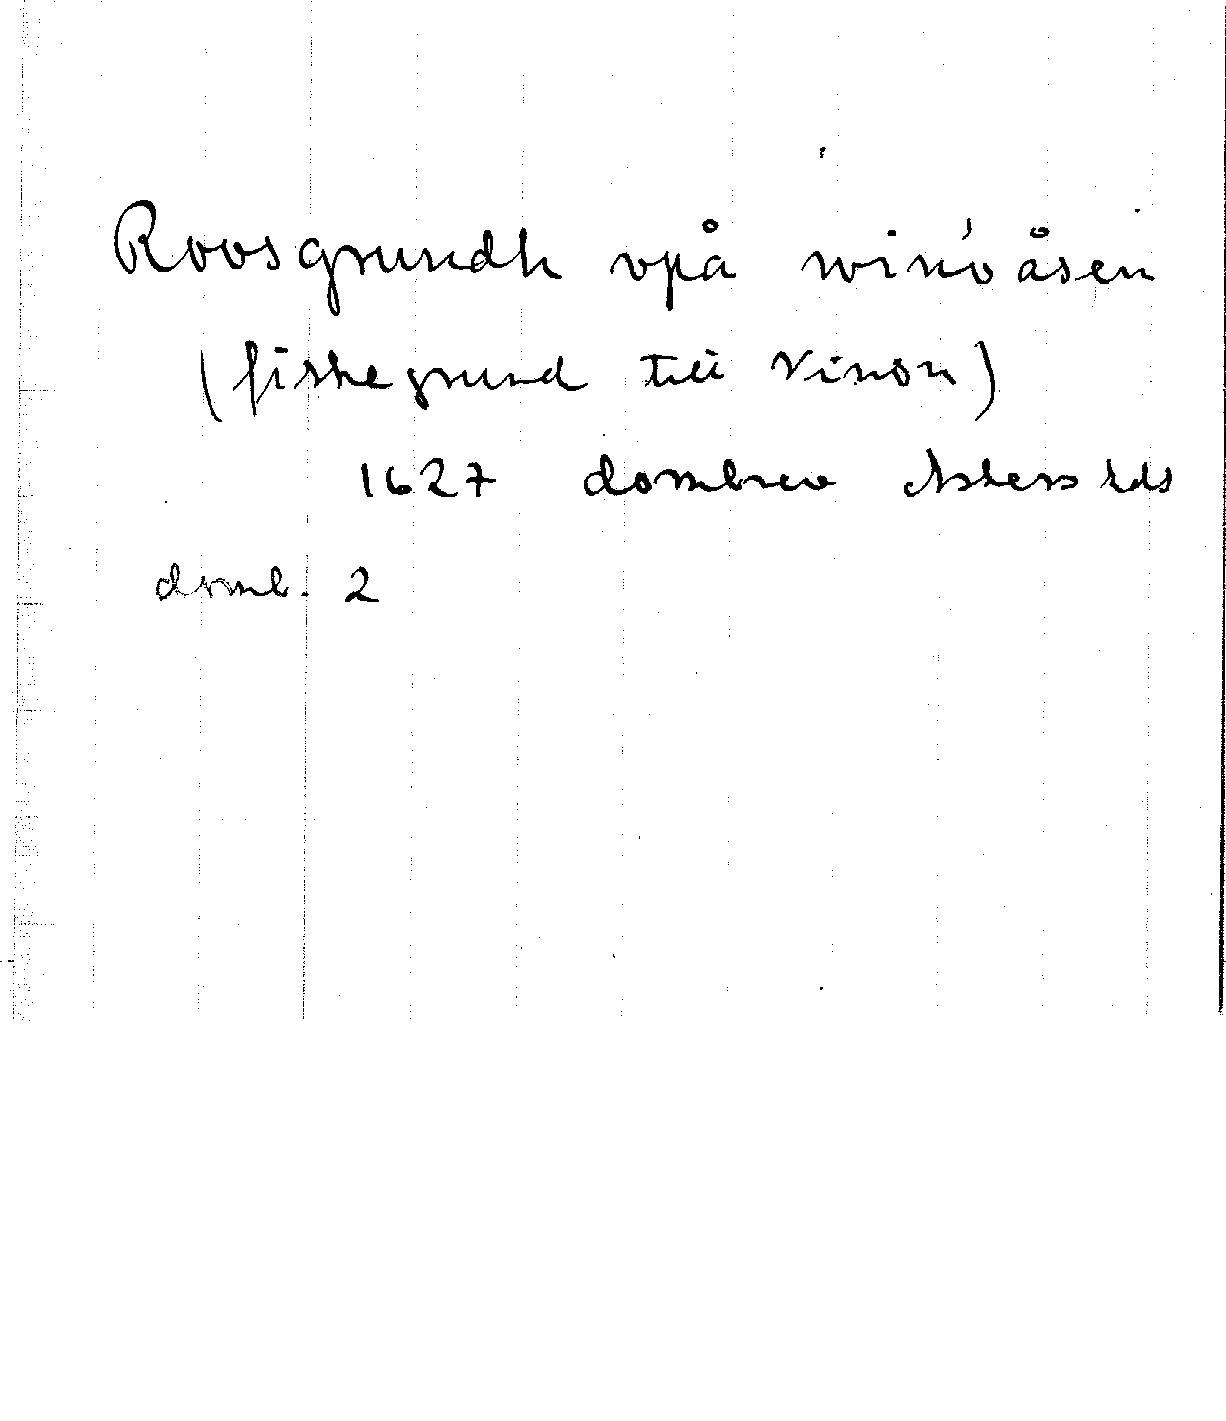 Roosgrundh vpå winó åsen
(fiskegrund till Vinön)
1627 dombrev Askers hds
domb. 2